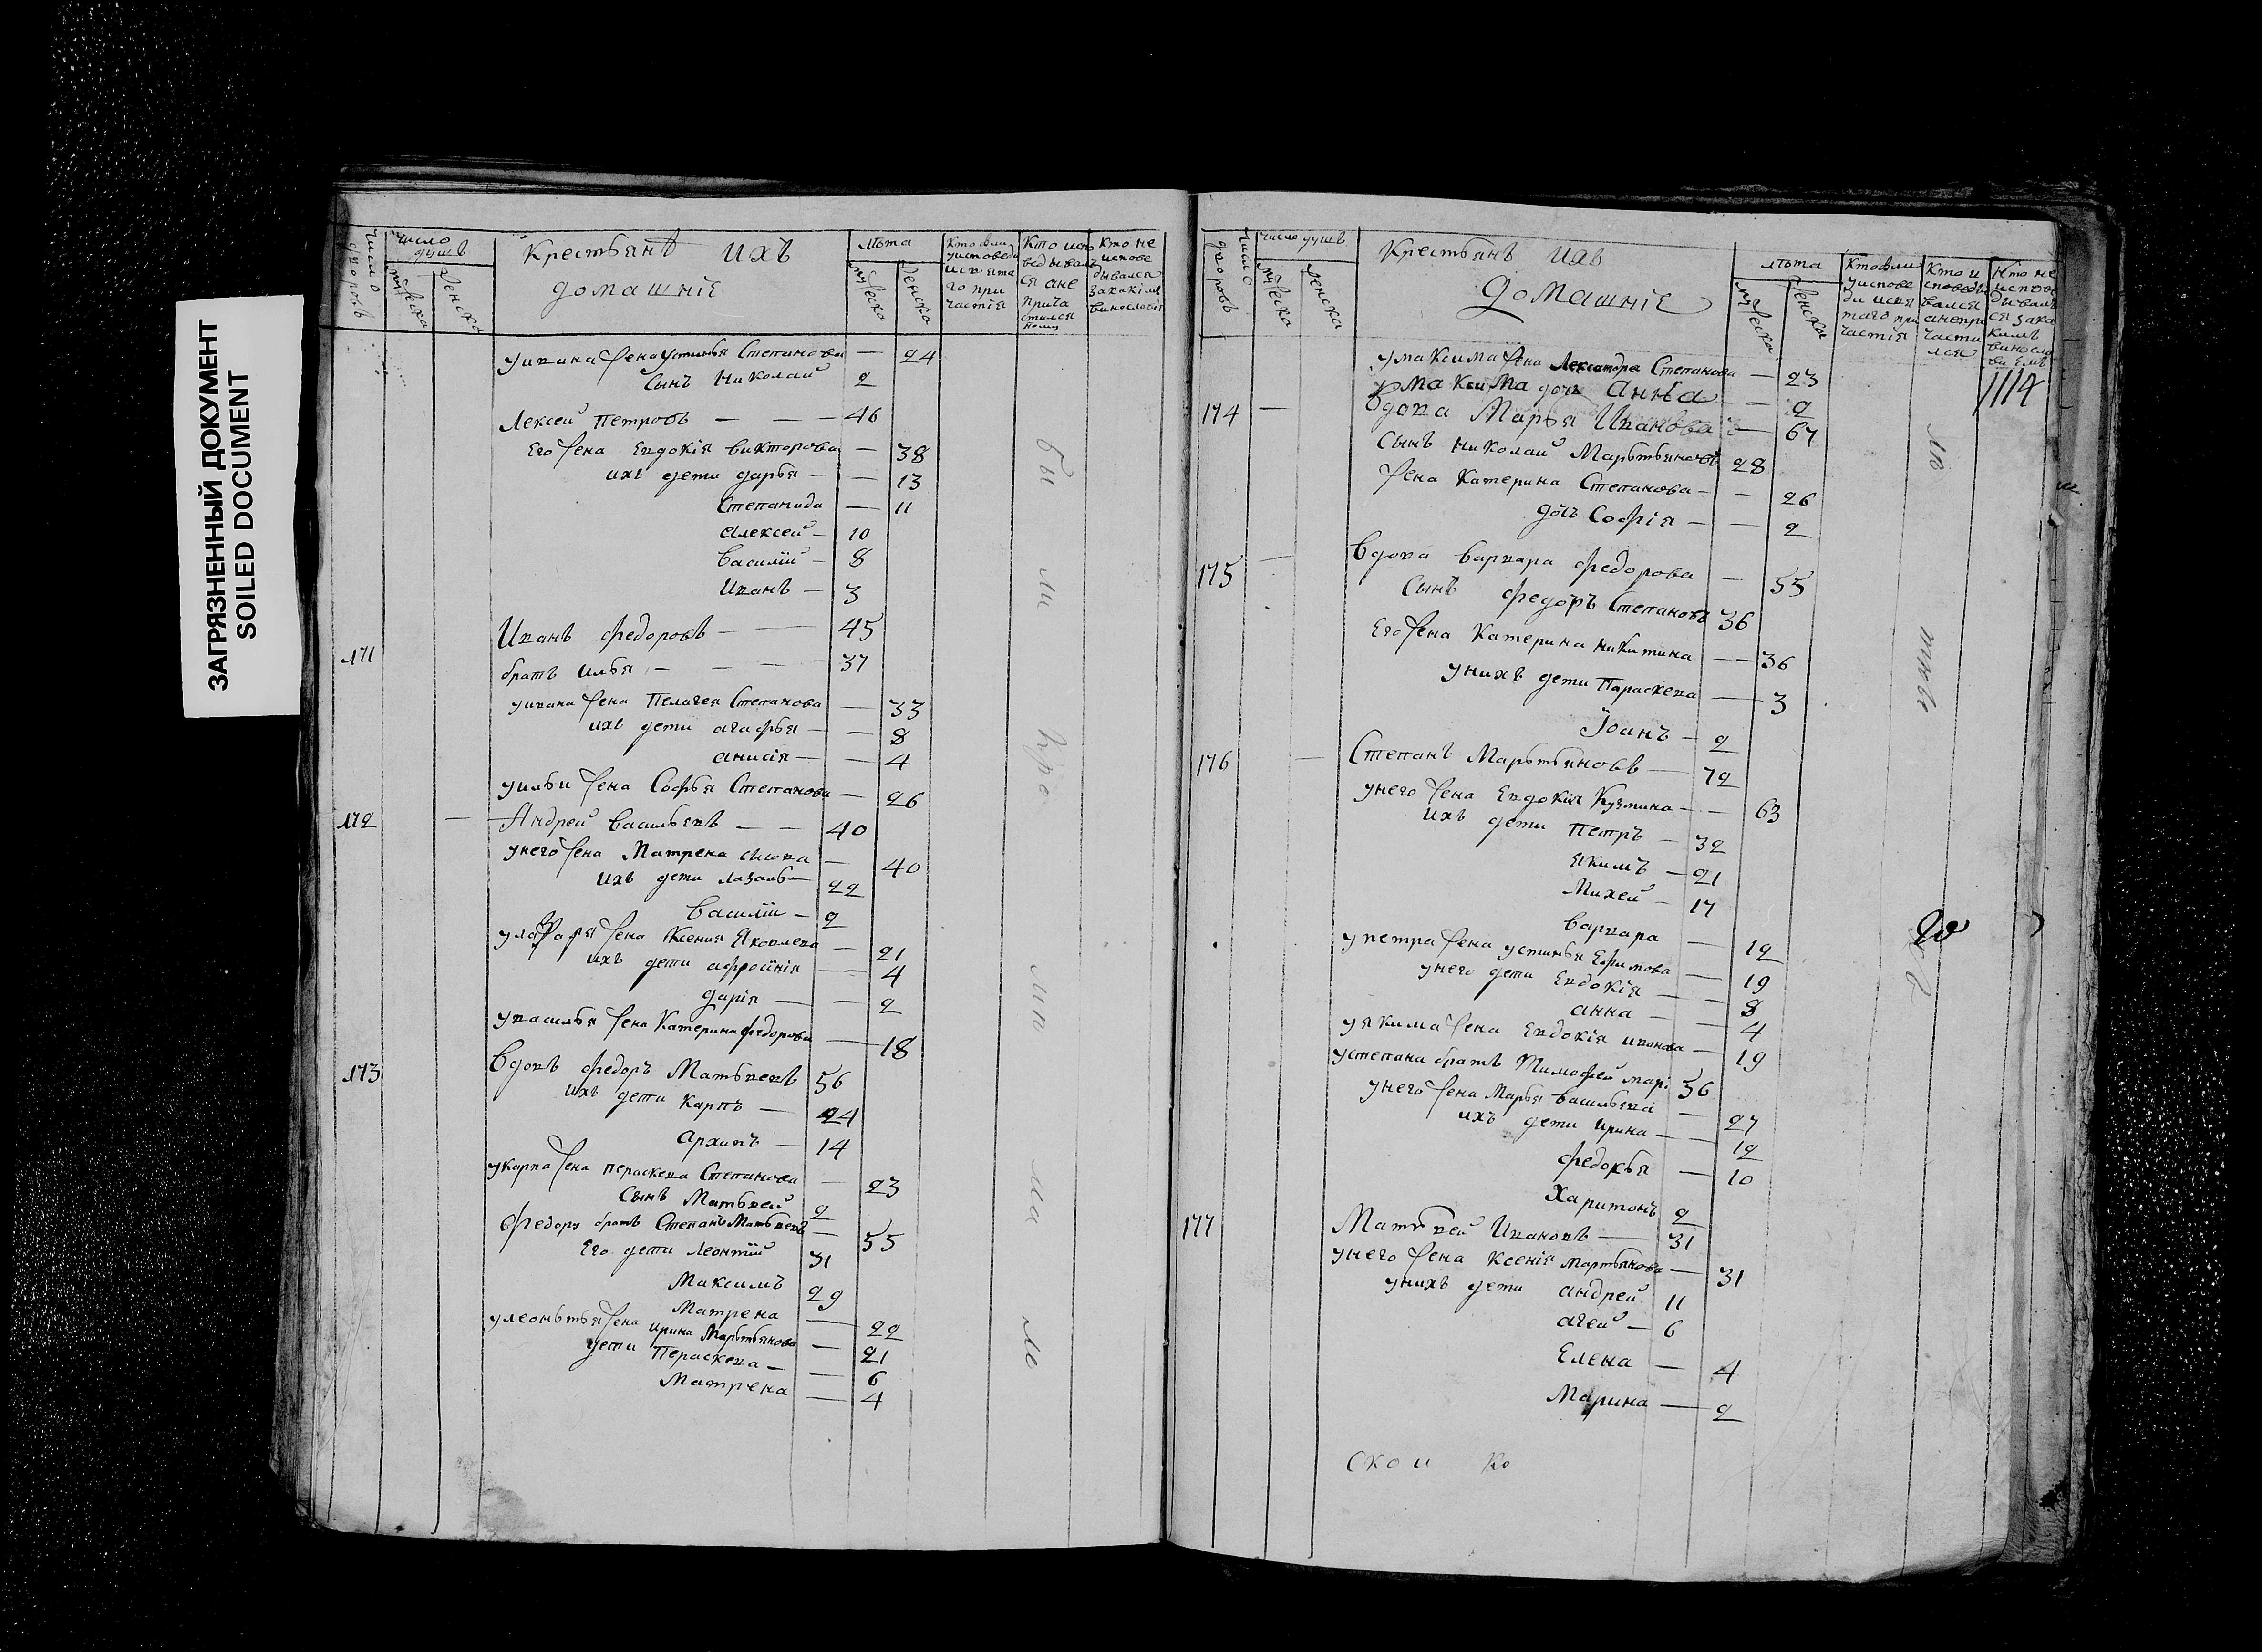 ЗАГРЯЗНЕННЫЙ ДОКУМЕНТ
SOILED DOCUMENT
Число дворовъ
Число душъ
мужеска
женска
Крестьянъ ихъ
домашніе
лѣта
мужеска
женска
Кто были
у исповеди
и святаго при
частія
Кто испо
ведывал
ся а не
прича
стился
Кто не
испове
дывался
за каким
винословіем
у ивана жена Устинья Степанова — 24
сынъ Николай 2
Лексей Петровъ — — 46
Его жена Евдокія викторова — 38
ихъ дети дарья — — 13
Степанида — 11
Алексей — 10
Василій — 8
Иванъ — 3
171 Иванъ федоровъ — — 45
братъ илья — — — — 37
у ивана жена Пелагея Степанова — 33
ихъ дети агафья — — 8
анисія — — 4
у ильи жена Софья Степанова — 26
172 — Андрей васильевъ — — 40
у него жена Матрена — 40
ихъ дети лазарь — 22
Василій — 2
у лазаря жена Ксения Яковлева — 21
ихъ дети — — 4
дарія — — 2
у василья жена Катерина федорова — 18
173 Вдовъ федоръ Матвеевъ 56
ихъ дети Карпъ — 24
архипъ — 14
у карпа жена пераскева Степанова — 23
сынъ Матвей 2
федору братъ Степанъ Матвеевъ — 55
Его дети Леонтій 31
Максимъ 29
Матрена — 22
у леонтья жена ирина Мартьянова — 21
дети Пераскева — — 6
Матрена — 4
бы ли про
Число дворовъ
Число душъ
мужеска
женска
Крестьянъ ихъ
Домашніе
лѣта
мужеска
женска
Кто были
у испове
ди и свя
таго при
частія
Кто и
споведы
вался
а непри
части
лся
Кто не
испове
дывал
ся за ка
кимъ
виносло
віемъ
1114
у максима жена Лександра Степанова — 23
у максима дочь Анна — — 2
174 — Вдова Марья Иванова — 67
Сынъ николай Мартьяновъ 28
жена Катерина Степанова — — 26
дочь Софія — — 2
175 — Вдова варвара федорова — 55
Сынъ федоръ Степановъ 36
Его жена Катерина никитина — 36
у нихъ дети Параскева — 3
Іоанъ — 2
176 — Степанъ Мартьяновъ — 72
у него жена Евдокія Кузмина — — 63
ихъ дети Петръ — 32
якимъ — 21
Михей — 17
варвара — 12
у петра жена устинья Ефимова — 19
у него дети Евдокія — — 8
анна — — 4
у якима жена Евдокія иванова — 19
у степана братъ Тимофей мар: 56
у него жена Марья васильева — 27
ихъ дети ирина — — 12
федосья — 10
Харитонъ 2
177 Матвей Ивановъ — 31
у него жена Ксенія мартьянова — 31
у нихъ дети андрей 11
агей — 6
Елена — 4
Марина — 2
ско и ко